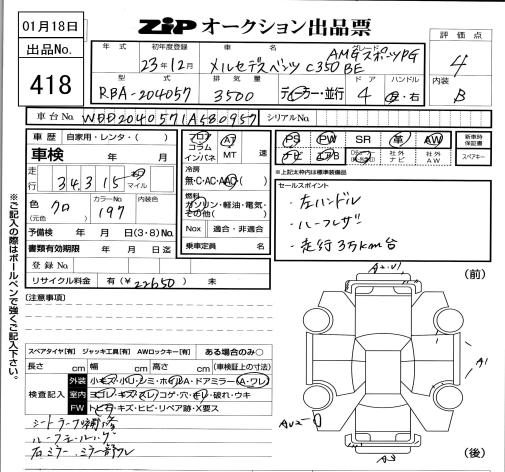 01月18日
出品No.
418
ZIP オークション出品票
年式 初年度登録 車名 グレード
23年12月 メルセデスベンツ C350 AMGスポーツPG BE
型式 排気量 ドア ハンドル
RBA-204057 3500 ディーラー・並行 4 左・右
評価点
4
内装
B
車台No. WDD2040571A580957 シリアルNo.
車歴 自家用・レンタ・( )
車検 年 月
走行 34315 km マイル
色 クロ (元色) カラーNo. 197 内装色
予備検 年 月 日(3・8)No.
書類有効期限 年 月 日迄
登録No.
リサイクル料金 有(¥22650) 未
フロア コラム インパネ AT MT 速
冷房 無・C・AC・AAC( )
燃料 ガソリン・軽油・電気・その他( )
Nox 適合・非適合
乗車定員 名
PS PW SR 革 AW
社外ナビ 社外AW
新車時保証書
スペアキー
※上記太枠内は標準装備品
セールスポイント
・左ハンドル
・ハーフレザー
・走行3万km台
※ご記入の際はボールペンで強くご記入下さい。
(注意事項)
スペアタイヤ[有] ジャッキ工具[有] AWロックキー[有] ある場合のみ○
長さ cm 幅 cm 高さ cm (車検証上の寸法)
検査記入
外装 小キズ・小・シミ・ホイルA・ドアミラー(A・ワレ)
室内 ヨゴレ・キズ・スレ・コゲ・穴・モレ・破れ・ウキ
FW トビ石・キズ・ヒビ・リペア跡・X要ス
右ミラー ミラー部ワレ
(前)
A1
A3
(後)